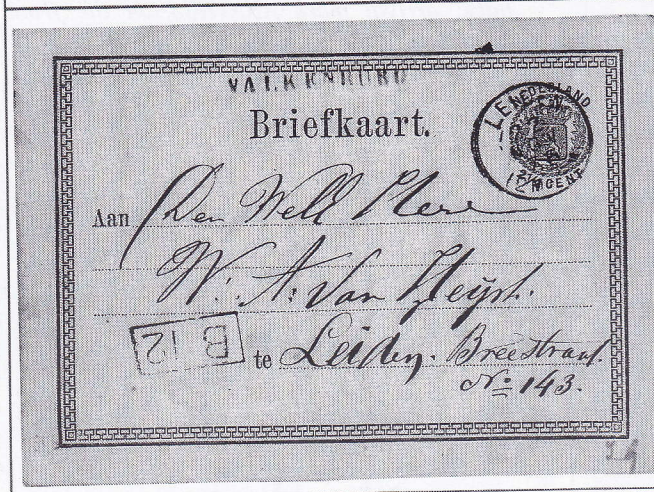 VALKENBURG
Briefkaart.
NEDERLAND
CENT
Aan Den Well Here
W: A: Van Heyst.
B 12
te Leiden. Breestraat.
No 143.